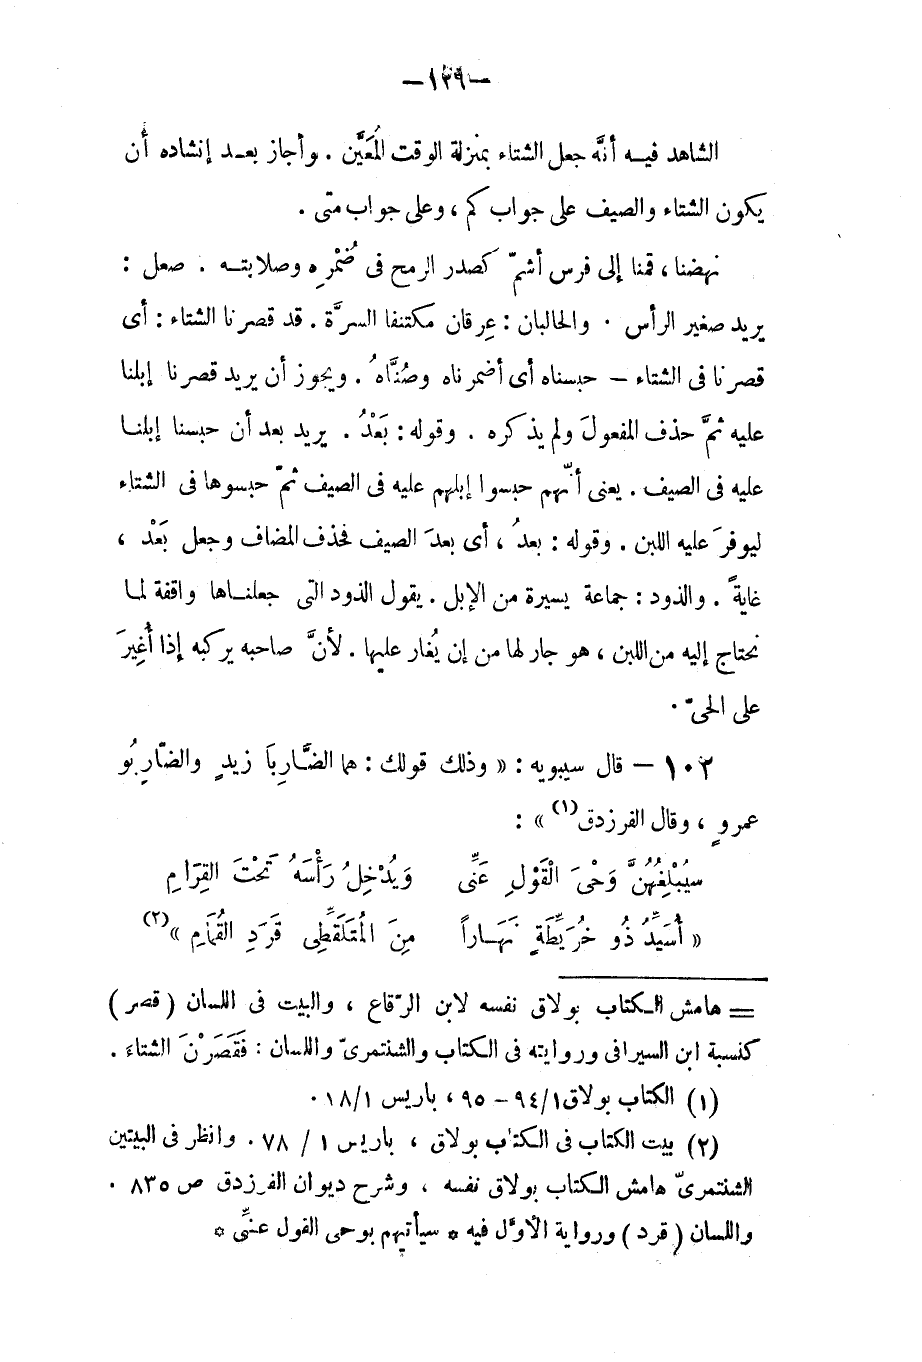 –١٣٩–
الشاهد فيه أنَّه جعل الشتاء بمنزلة الوقت المُعَيَّن . وأجاز بعد إنشاده أن
يكون الشتاء والصيف على جواب كم ، وعلى جواب متى .
نهضنا ، قمنا إلى فرس أشمّ كصدر الرمح فى ضُمْرِه وصلابته . صعل :
يريد صغير الرأس . والحالبان : عِرقان مكتنفا السرَّة . قد قصرنا الشتاء : أى
قصرنا فى الشتاء – حبسناه أى أضمرناه وصُنَّاهُ . ويجوز أن يريد قصرنا إبلنا
عليه ثمَّ حذف المفعولَ ولم يذكره . وقوله : بَعْدُ . يريد بعد أن حبسنا إبلنا
عليه فى الصيف . يعنى أنّهم حبسوا إبلهم عليه فى الصيف ثمّ حبسوها فى الشتاء
ليوفرَ عليه اللبن . وقوله : بعدُ ، أى بعدَ الصيف فحذف المضاف وجعل بَعْد ،
غايةً . والذود : جماعة يسيرة من الإبل . يقول الذود التى جعلناها واقفة لما
نحتاج إليه من اللبن ، هو جار لها من إن يُغار عليها . لأنَّ صاحبه يركبه إذا أُغِيرَ
على الحىّ .
١٠٣ – قال سيبويه : « وذلك قولك : هما الضَّارِبَا زيدٍ والضّارِبُو
عمروٍ ، وقال الفرزدق(١) » :
سيُبْلِغُهُنَّ وَحْىَ الْقَوْلِ عَنِّى وَيُدْخِلُ رَأْسَهُ تَحْتَ القِرَامِ
« أُسَيِّدُ ذُو خُرَيِّطَةٍ نَهَاراً مِنَ الْمُتَلَقِّطِى قَرَدِ القُمَامِ »(٢)
= هامش الكتاب بولاق نفسه لابن الرّقاع ، والبيت فى اللسان ( قصر )
كنسبة ابن السيرافى وروايته فى الكتاب والشنتمرىّ واللسان : فَقَصَرْنَ الشتاءَ .
(١) الكتاب بولاق ٩٤/١ – ٩٥ ، باريس ١٨/١ .
(٢) بيت الكتاب فى الكتاب بولاق ، باريس ١ / ٧٨ . وانظر فى البيتين
الشنتمرىّ هامش الكتاب بولاق نفسه ، وشرح ديوان الفرزدق ص ٨٣٥ .
واللسان ( قرد ) ورواية الأوّل فيه * سيأتيهم بوحى القول عنِّى *